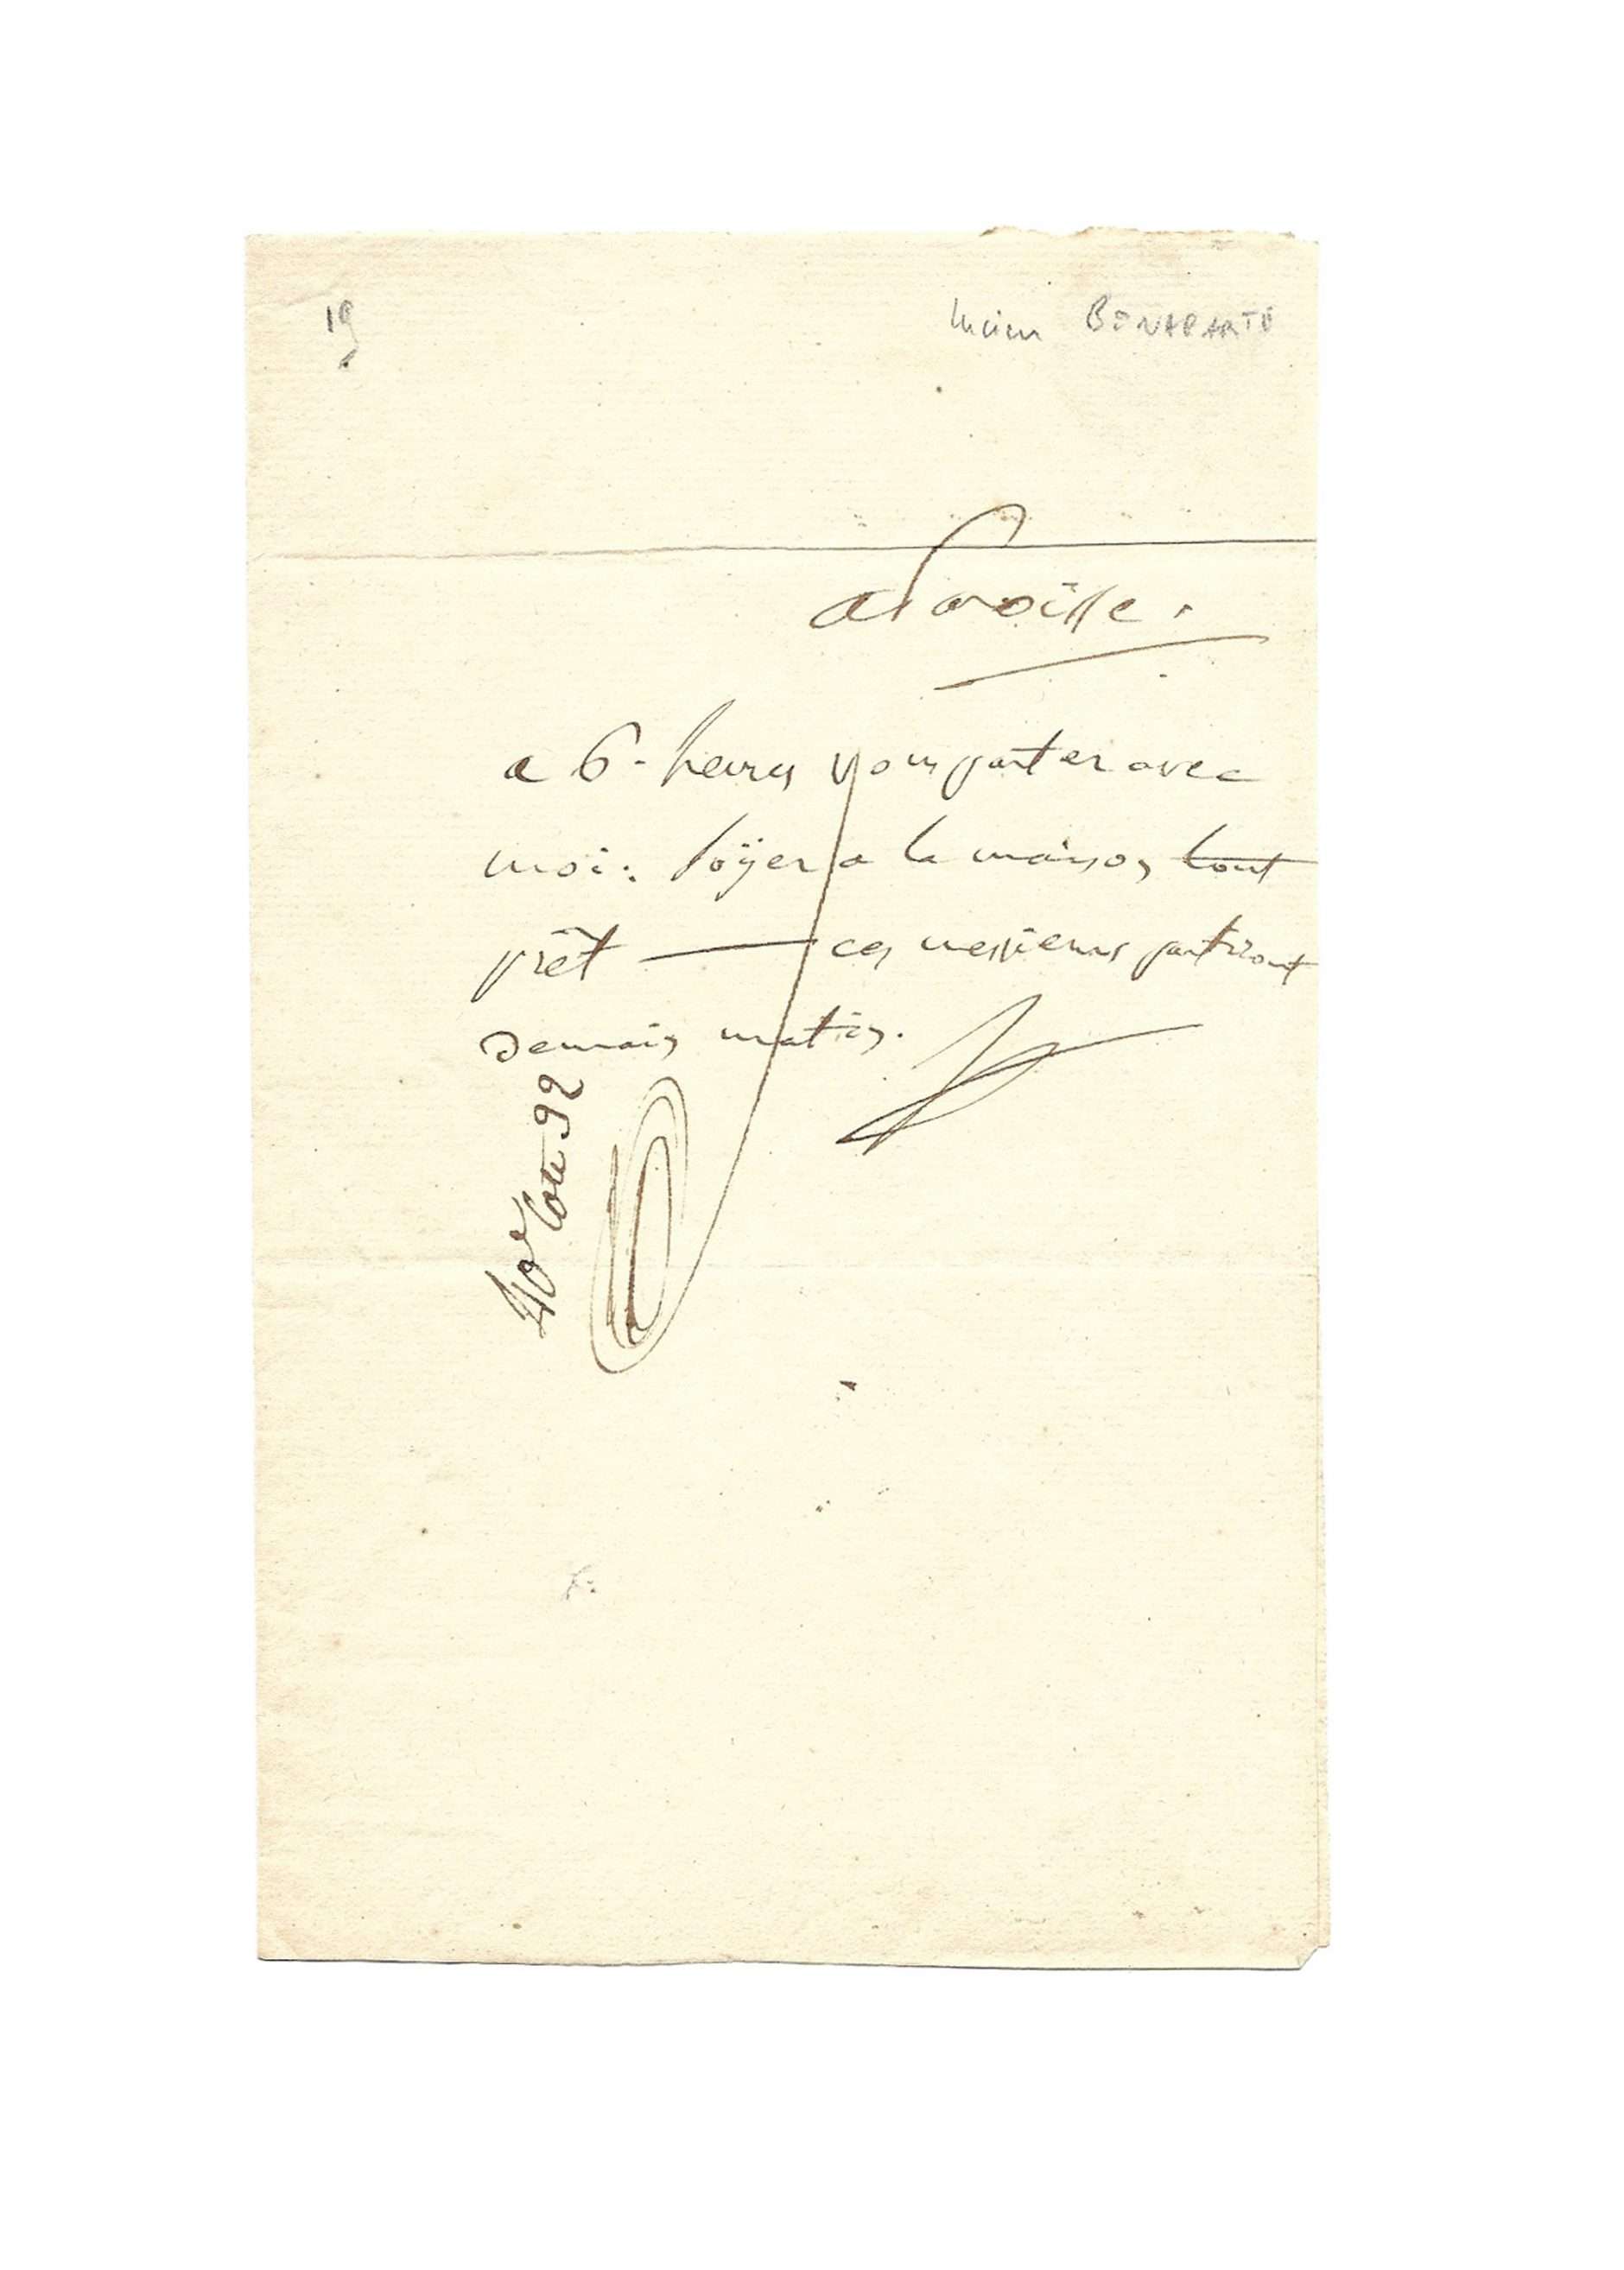 19
Lucien BONAPARTE
a Paroisse.
a 6. heures vous partez avec
moi: soÿez a la maison tout
prêt — ces messieurs partiront
demain matin.
Cote 92